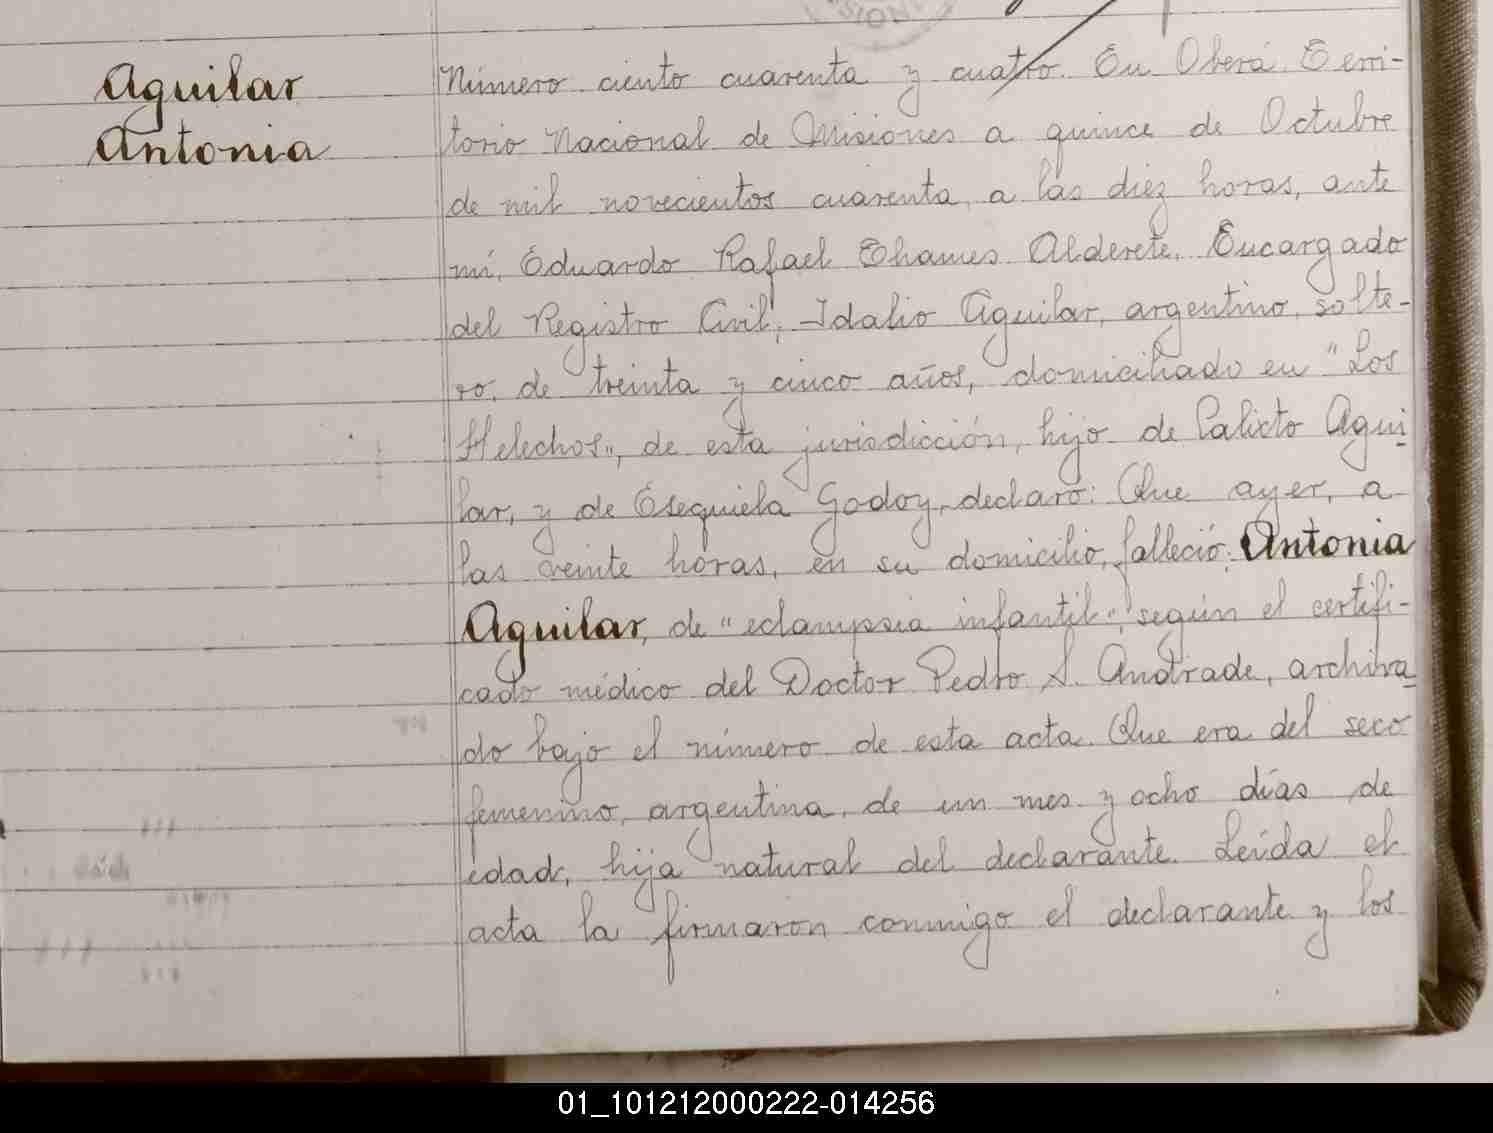 SION
Aguilar
Antonia
Número ciento cuarenta y cuatro. En Oberá, Terri-
torio Nacional de Misiones a quince de Octubre
de mil novecientos cuarenta, a las diez horas, ante
mí, Eduardo Rafael Thames Alderete, Encargado
del Registro Civil, Idalio Aguilar, argentino, solte-
ro, de treinta y cinco años, domiciliado en "Los
Helechos", de esta jurisdicción, hijo de Calixto Agui-
lar, y de Esequiela Godoy, declaró: Que ayer, a
las veinte horas, en su domicilio, falleció: Antonia
Aguilar, de "eclampsia infantil", según el certifi-
cado médico del Doctor Pedro S. Andrade, archiva-
do bajo el número de esta acta. Que era del sexo
femenino, argentina, de un mes y ocho días de
edad, hija natural del declarante. Leída el
acta la firmaron conmigo el declarante y los
01_101212000222-014256